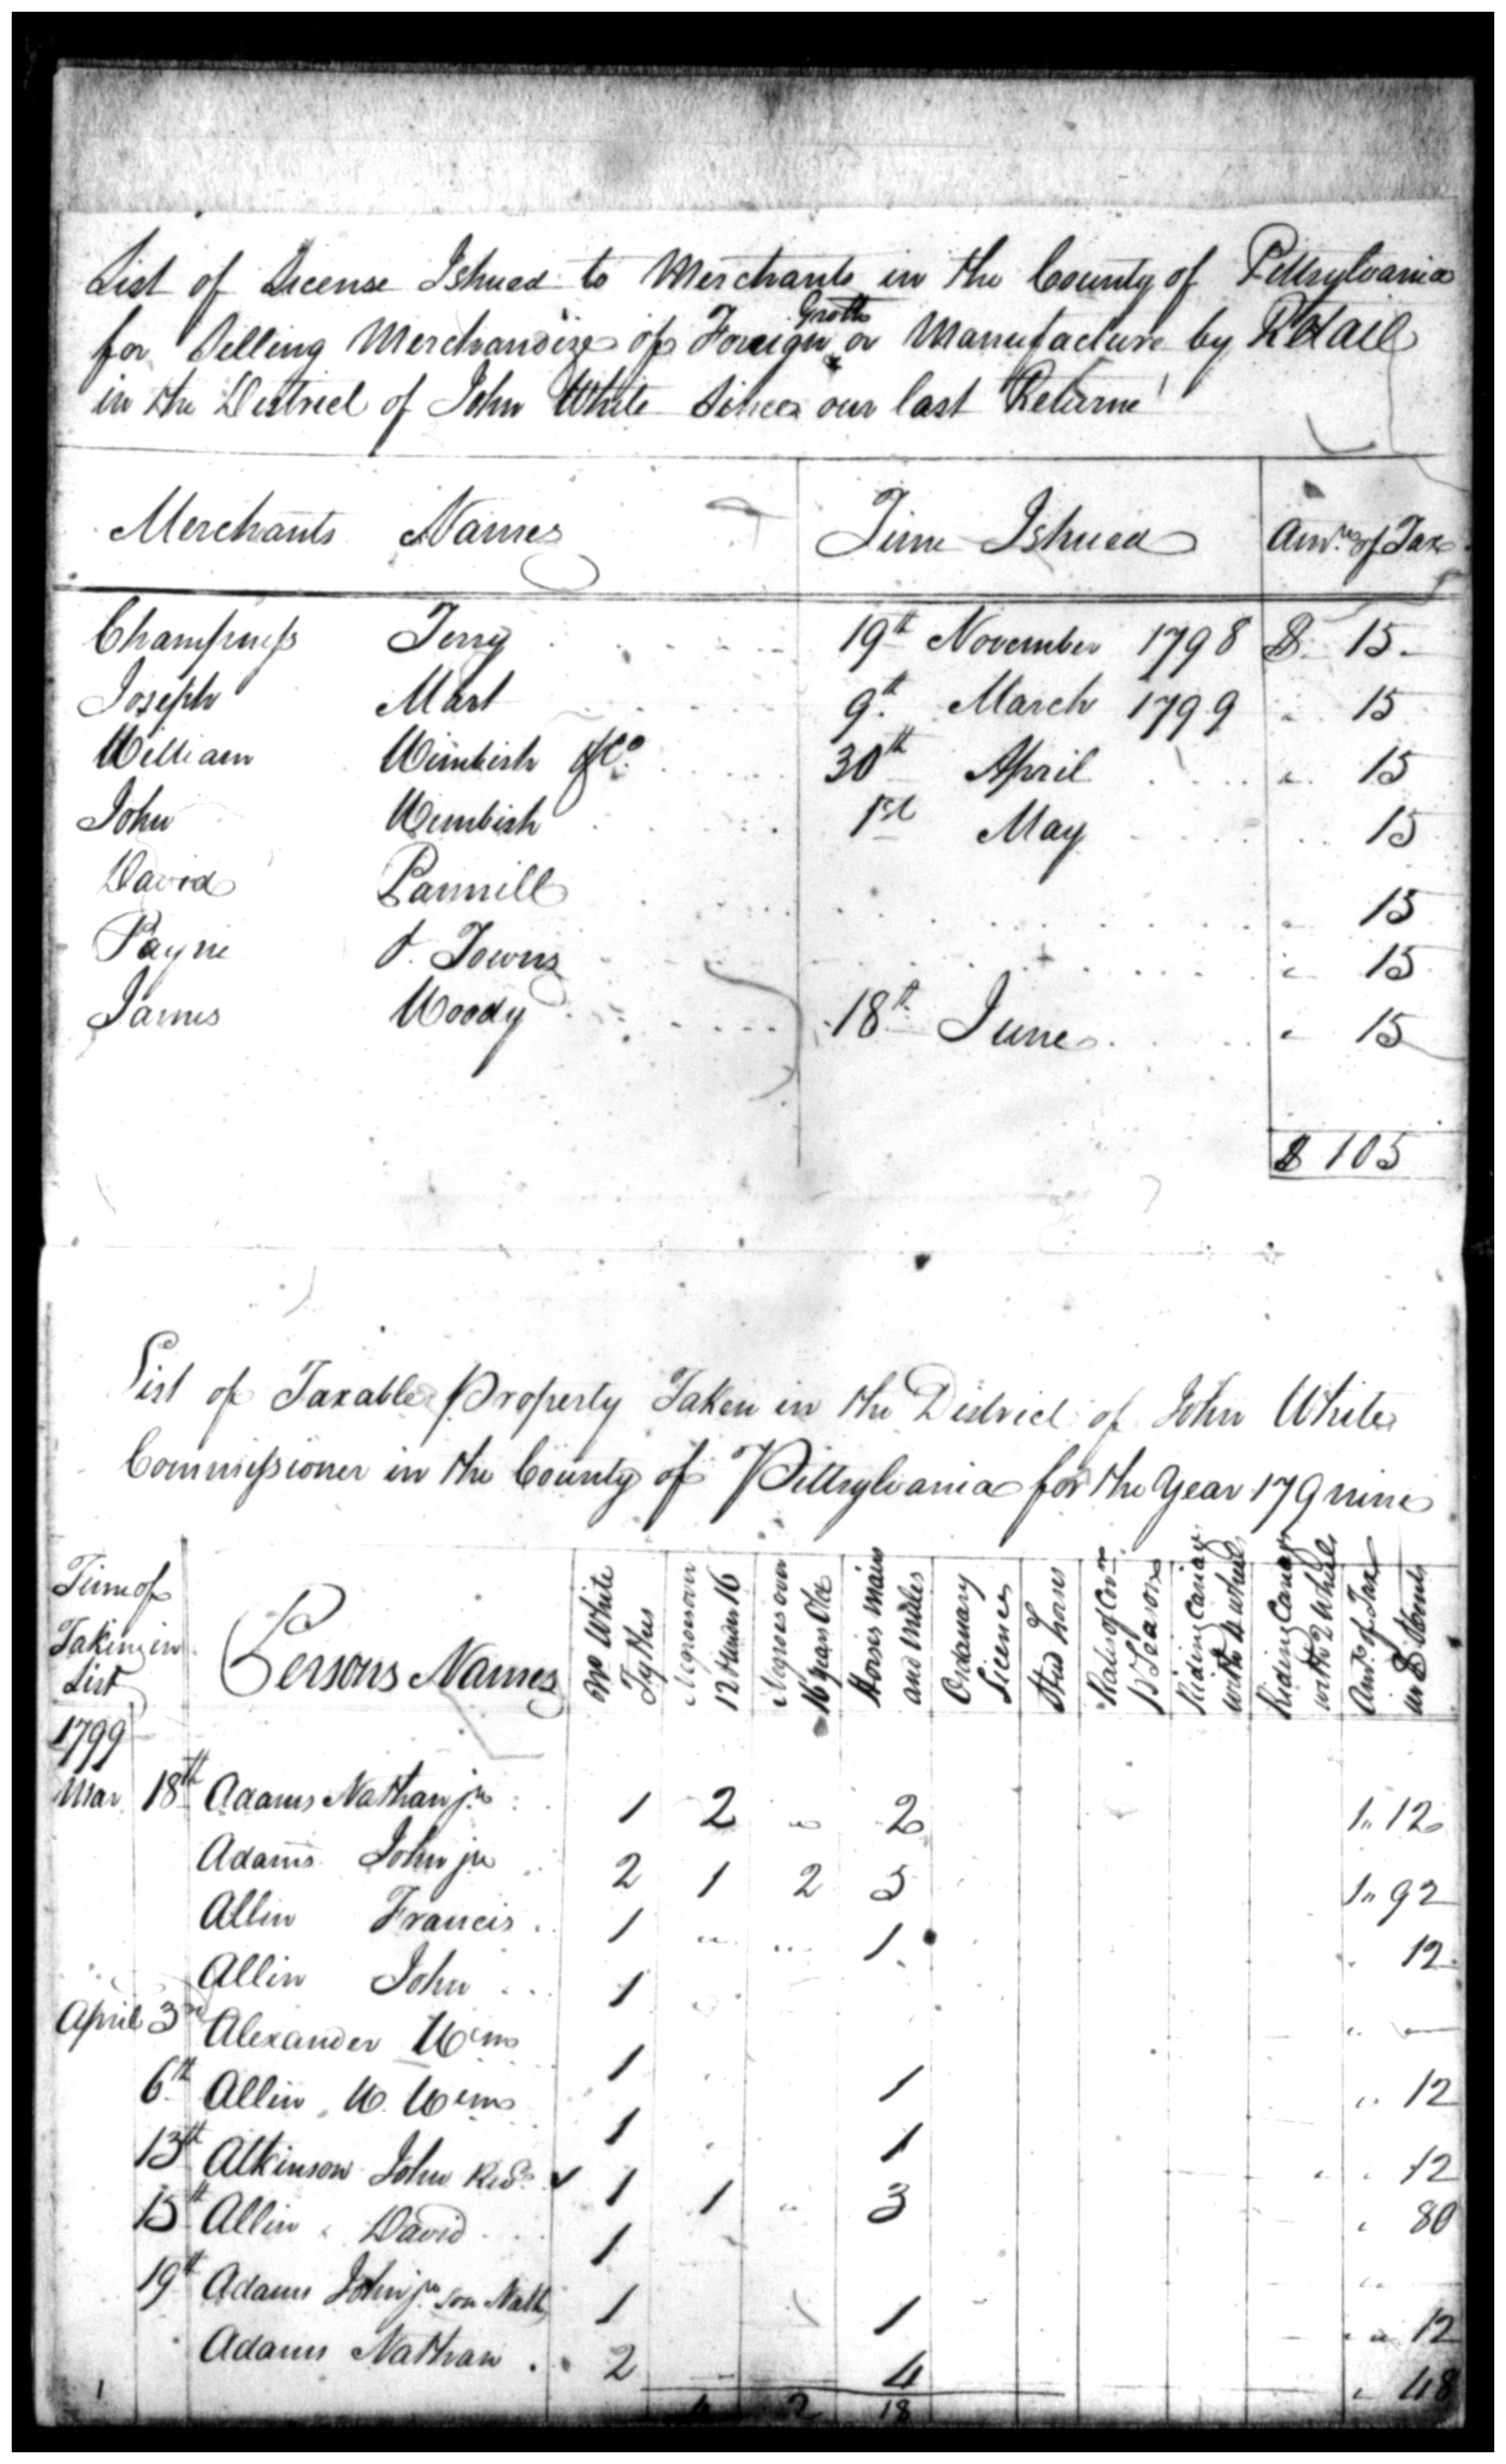 List of License Ishued to Merchants in the County of Pittsylvania
for Selling Merchandize of Foreign Groth or Manufacture by Retail
in the District of John White Since our last Returne
Merchants Names Time Ishued Amt. of Tax
Champness Terry 19th November 1798 $ 15
Joseph Mart 9th March 1799 " 15
William Wimbish & Co. 30th April " 15
John Wimbish 1st May 15
David Pannill " 15
Payne & Towns " 15
James Woody 18th June " 15
$ 105
List of Taxable Property Taken in the District of John White
Commissioner in the County of Pittsylvania for the Year 179nine
Time of Taking in List Persons Names No White Tythes Negroes over 12 & under 16 Negroes over 16 years Old Horses Mairs and Mules Ordanary Licence Stud horses Rates of Covr. P Season Riding Cariag with 4 wheels Riding Cariag with 2 Wheels Amt. of Tax in $ & Cents
1799
Mar 18th Adams Nathan jr 1 2 " 2 1" 12
Adams John jr 2 1 2 5 1" 92
Allin Francis 1 " " 1 " 12
Allin John 1 " —
April 3rd Alexander Wm 1 1 " 12
6th Allin W. Wm 1 1 " " 12
13th Atkinson John Revd. 1 1 " 3 " 80
15th Allin David 1 "
19th Adams John jr son Nath 1 1 " " 12
Adams Nathan 2 4 " 48
1 4 2 18